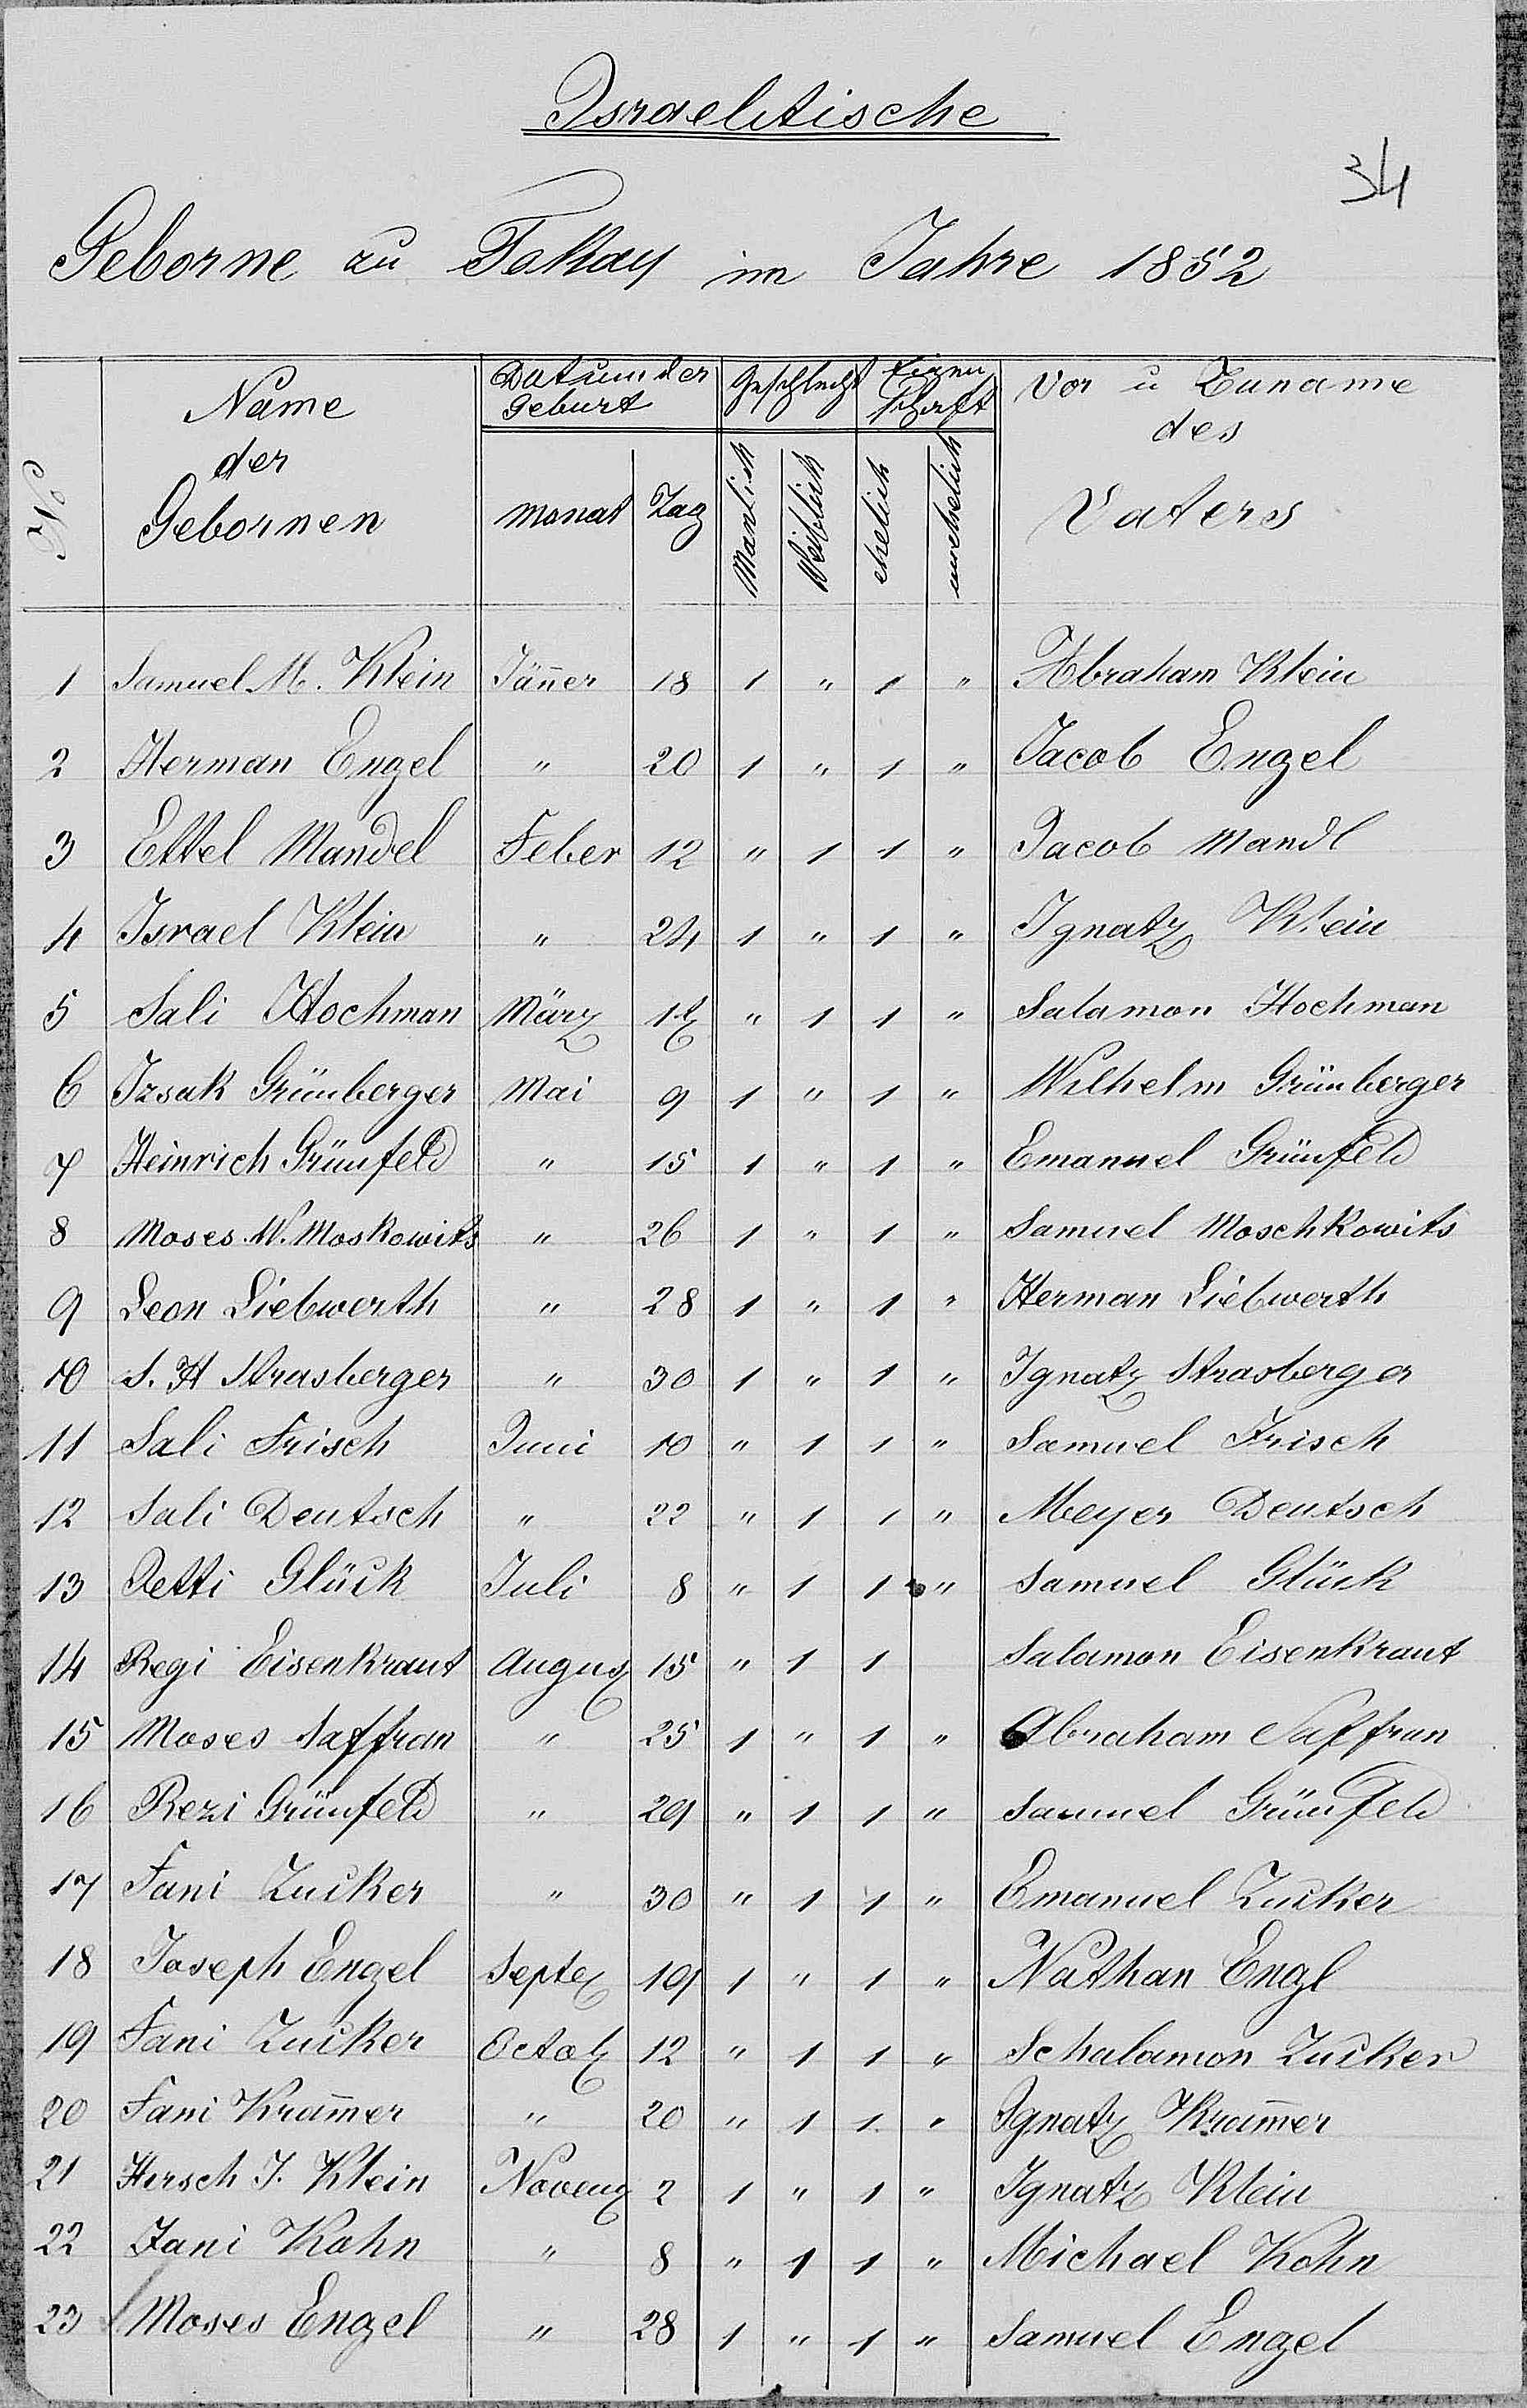 Israelitische
34
Geborne zu Tokay im Jahre 1852
No | Name der Gebornen | Datum der Geburt | Geschlecht | Eigenschaft | Vor u Zuname des Vaters
monat | Tag | Manlich | Weiblich | ehelich | unehelich
1 Samuel M. Klein Jäner 18 1 " 1 " Abraham Klein
2 Herman Engel " 20 1 " 1 " Jacob Engel
3 Ettel Mandel Feber 12 " 1 1 " Jacob Mandl
4 Israel Klein " 24 1 " 1 " Ignatz Klein
5 Sali Hochman März " 1 1 " Salamon Hochman
6 Izsak Grünberger Mai 9 1 " 1 " Wilhelm Grünberger
7 Heinrich Grünfeld " 15 1 " 1 " Emanuel Grünfeld
8 Moses W. Moskowits " 26 1 " 1 " Samuel Moschkowits
9 Leon Liebwerth " 28 1 " 1 " Herman Liebwerth
10 S. H Strasberger " 30 1 " 1 " Ignatz Strasberger
11 Sali Frisch Juni 10 " 1 1 " Samuel Frisch
12 Sali Deutsch " 22 " 1 1 " Meyer Deutsch
13 Glück Juli 8 " 1 1 " Samuel Glück
14 Regi Eisenkraut August 15 " 1 1 Salamon Eisenkraut
15 Moses Saffran " 25 1 " 1 " Abraham Saffran
16 Rezi Grünfeld " 29 " 1 1 " Samuel Grünfeld
17 Fani Zucker " 30 " 1 1 " Emanuel Zucker
18 Joseph Engel Septe 19 1 " 1 " Nathan Engl
19 Fani Zucker Octob 12 " 1 1 " Schalamon Zucker
20 Fani Kram̄er " 20 " 1 1 " Ignatz Kram̄er
21 Hersch J. Klein Novem 2 1 " 1 " Ignatz Klein
22 Fani Kohn " 8 " 1 1 " Michael Kohn
23 Moses Engel " 28 1 " 1 " Samuel Engel